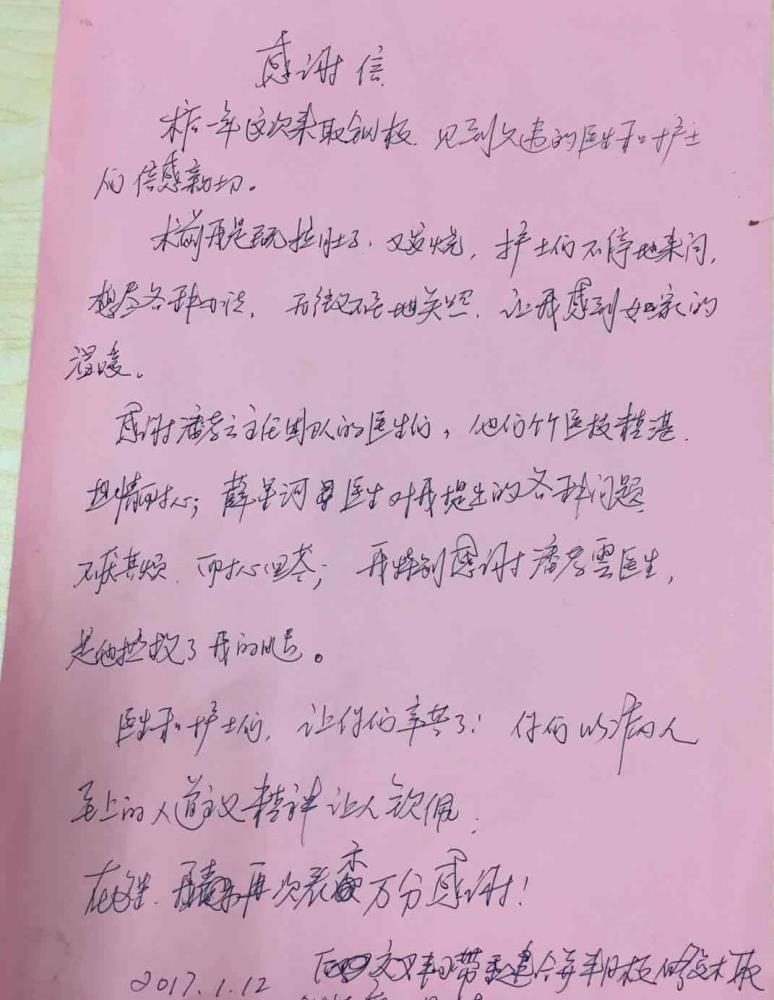 感谢信
术后一年这次来取钢板，见到久违的医生和护士
们倍感亲切。
术前我是既拉肚子，又发烧，护士们不停地来问，
想尽各种办法，无微不至地关照，让我感到如家的
温暖。
感谢潘孝云主任团队的医生们，他们个个医技精湛，
热情耐心；薛星河医生对我提出的各种问题
不厌其烦，耐心回答；我特别感谢潘孝雲医生，
是他拯救了我的腿。
医生和护士们，让你们辛苦了！你们以病人
至上的人道主义精神让人钦佩，
在这里，再次表示万分感谢！
2017.1.12 交叉韧带重建合并半月板修复术取